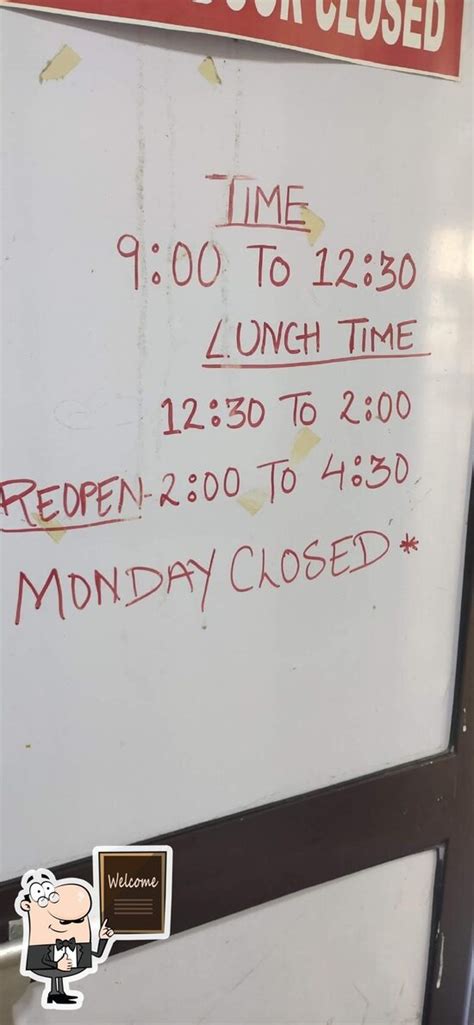 DOOR CLOSED
TIME
9:00 TO 12:30
LUNCH TIME
12:30 TO 2:00
REOPEN-2:00 TO 4:30
MONDAY CLOSED *
Welcome